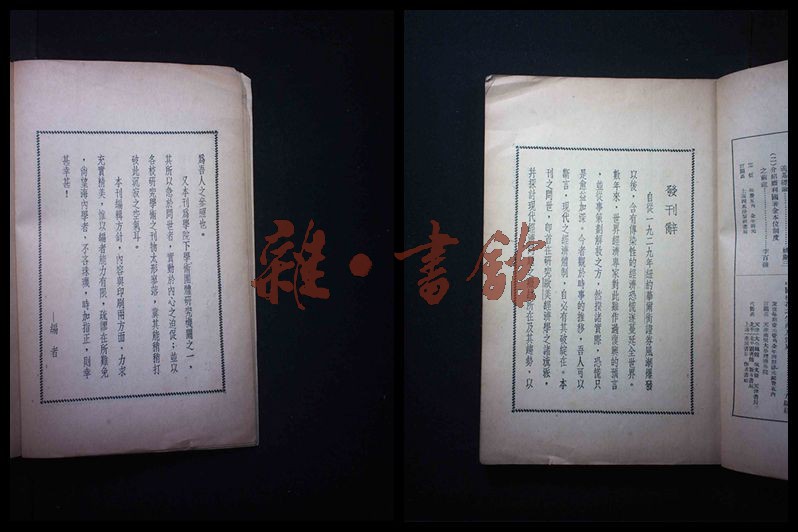 發刊辭
自從一九二九年紐約華爾街證券風潮爆發
以後，含有傳染性的經濟恐慌遂蔓延全世界。
數年來，世界經濟專家對此雖作過復興的預言
，並從事策劃解救之方，然探諸實際，恐慌只
是愈益加深。今者觀於時事的推移，吾人可以
斷言，現代之經濟體制，自必有其破綻在。本
刊之問世，即旨在研究歐美經濟學之諸流派，
并探討現代經濟所在及其趨勢，以
爲吾人之參照也。
又本刊爲學院下學術團體研究機關之一，
其所以急於問世者，實動於內心之迫促；並以
各校研究學術之刊物太形寥落，冀其能稍稍打
破此沉寂之空氣耳。
本刊編輯方針，內容與印刷兩方面，力求
充實精美，惟以編者能力有限，疏謬在所難免
，尙望海內學者，不吝珠璣，時加指正，則幸
甚幸甚！
—編者
(二)介紹
國著金本位制度
之
李百强
雜·書館